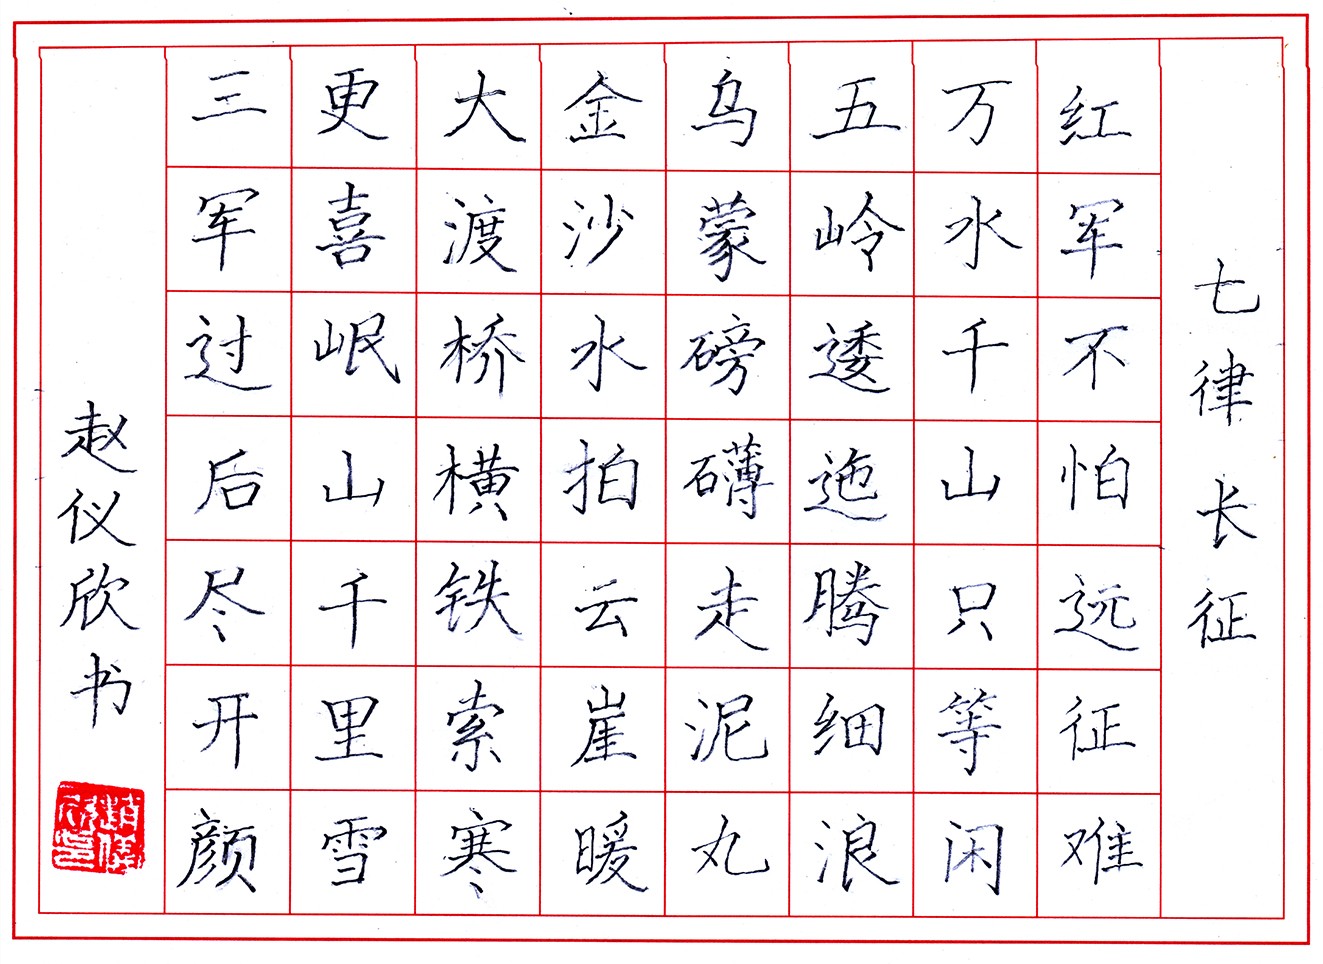 七律长征
红军不怕远征难
万水千山只等闲
五岭逶迤腾细浪
乌蒙磅礴走泥丸
金沙水拍云崖暖
大渡桥横铁索寒
更喜岷山千里雪
三军过后尽开颜
赵仪欣书